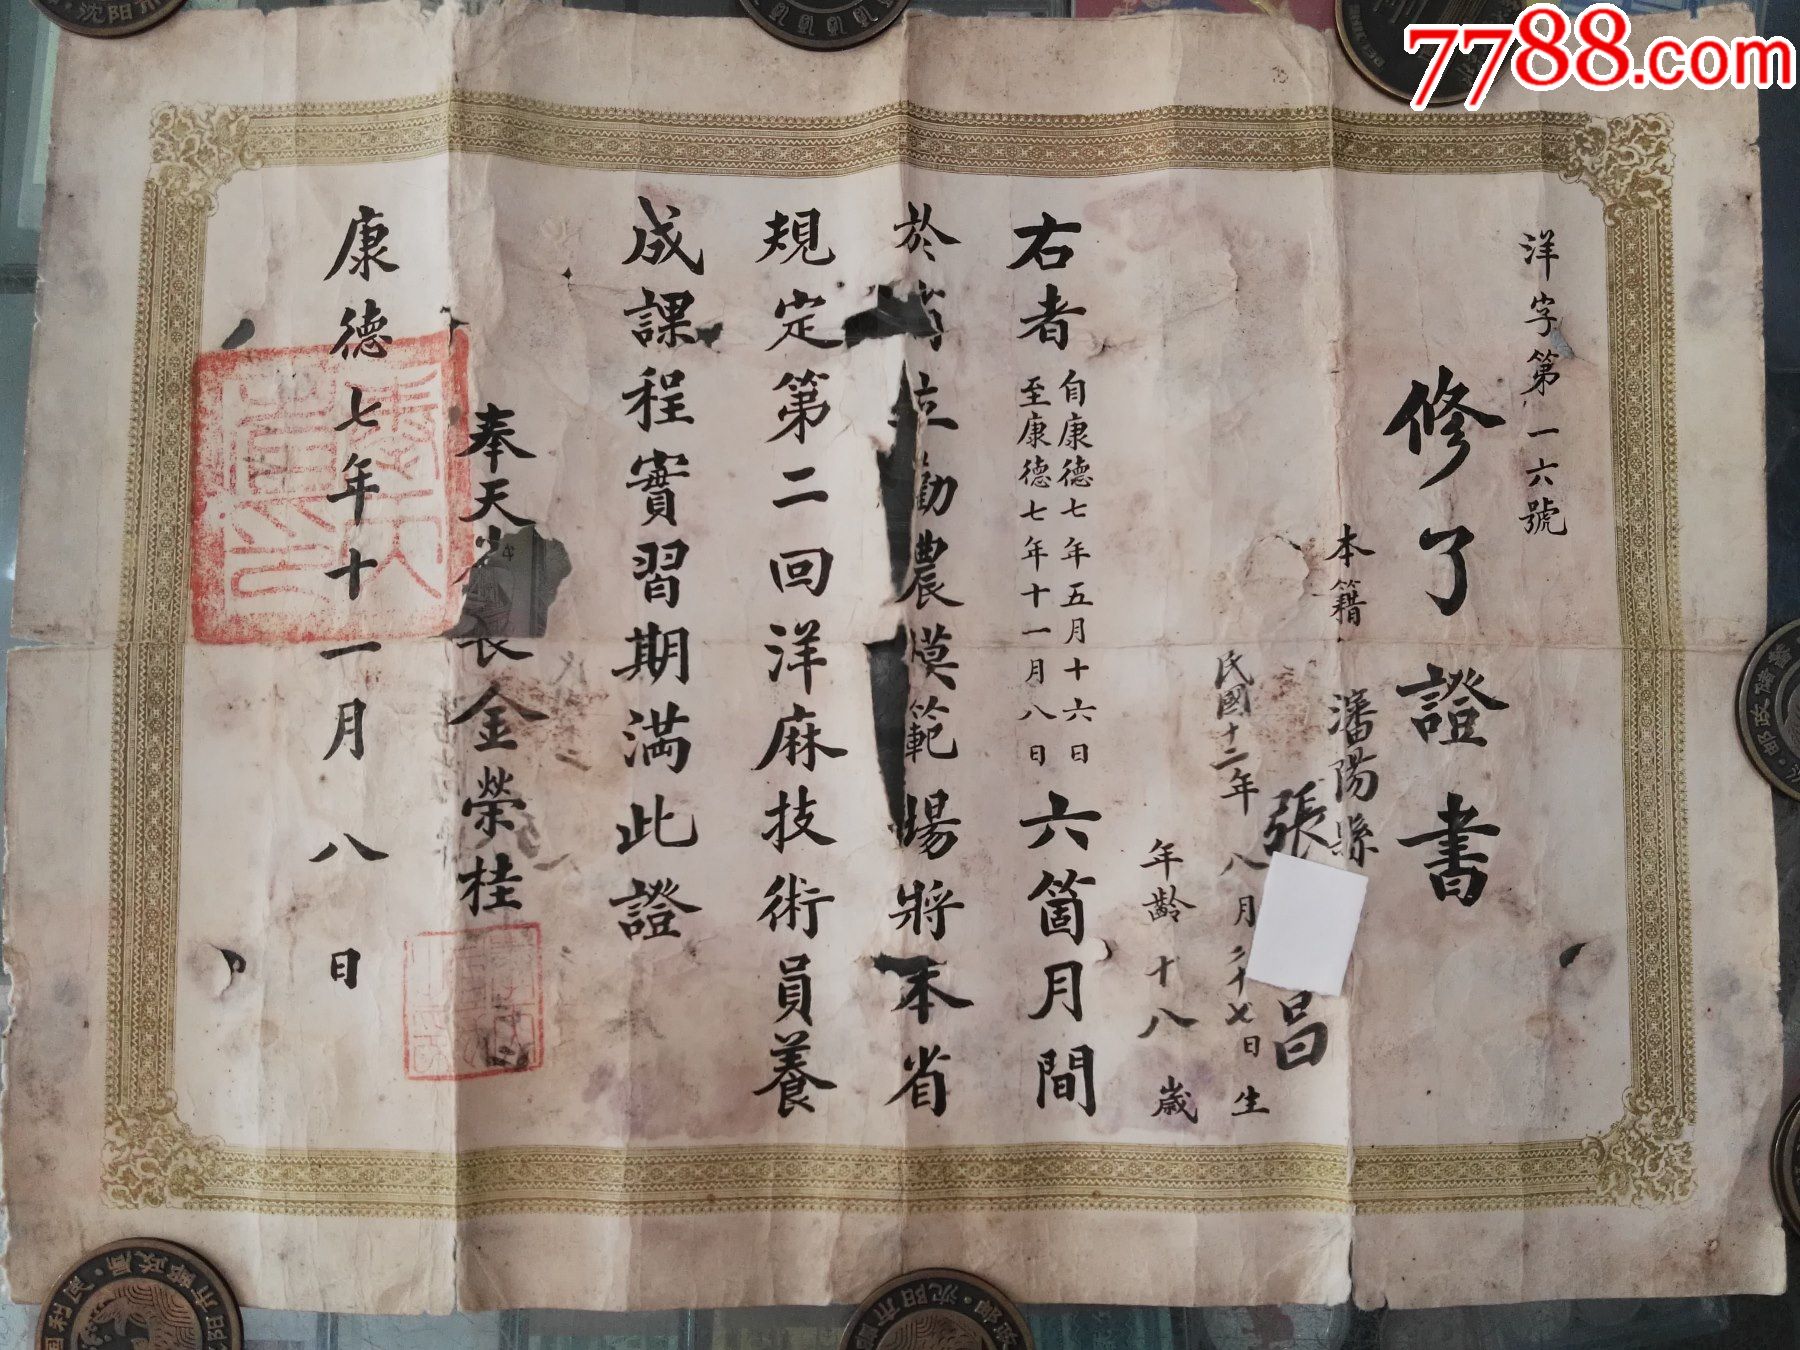 7788.com
洋字第一六號
修了證書
本籍 瀋陽縣
張 昌
民國十二年八月二十七日生
年齡十八歲
右者自康德七年五月十六日至康德七年十一月八日六箇月間
於省立勸農模範場將本省
規定第二回洋麻技術員養
成課程實習期滿此證
康德七年十一月八日
奉天省長金榮桂